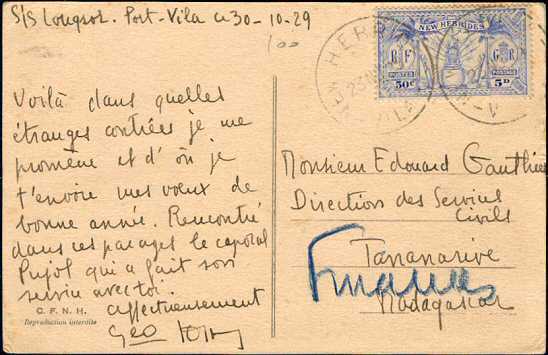 S/S Lougsor. Port-Vila ce 30-10-29
100
NEW HEBRIDES
RF
GR
POSTES
POSTAGE
50c
5D
Voilà dans quelles
étranges contrées je me
promène et d'où je
t'envoie mes vœux de
bonne année. Rencontré
dans ces parages le caporal
Pujol qui a fait son
service avec toi.
affectueusement
Geo
C. F. N. H.
Reproduction interdite
Monsieur Edouard Gauthier
Direction des Services
Civils
Tananarive
Finances
Madagascar